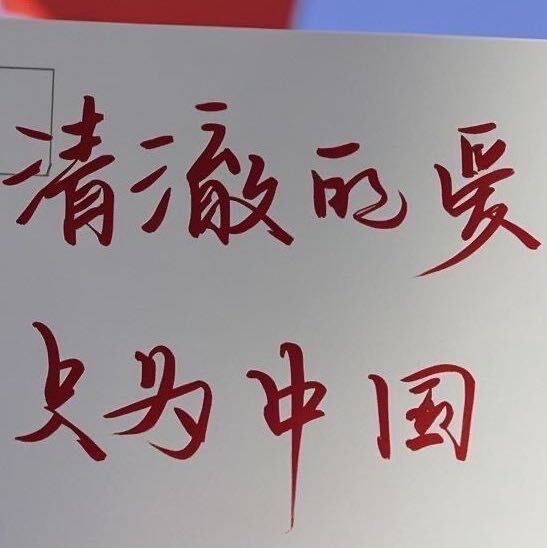 清澈的爱
只为中国